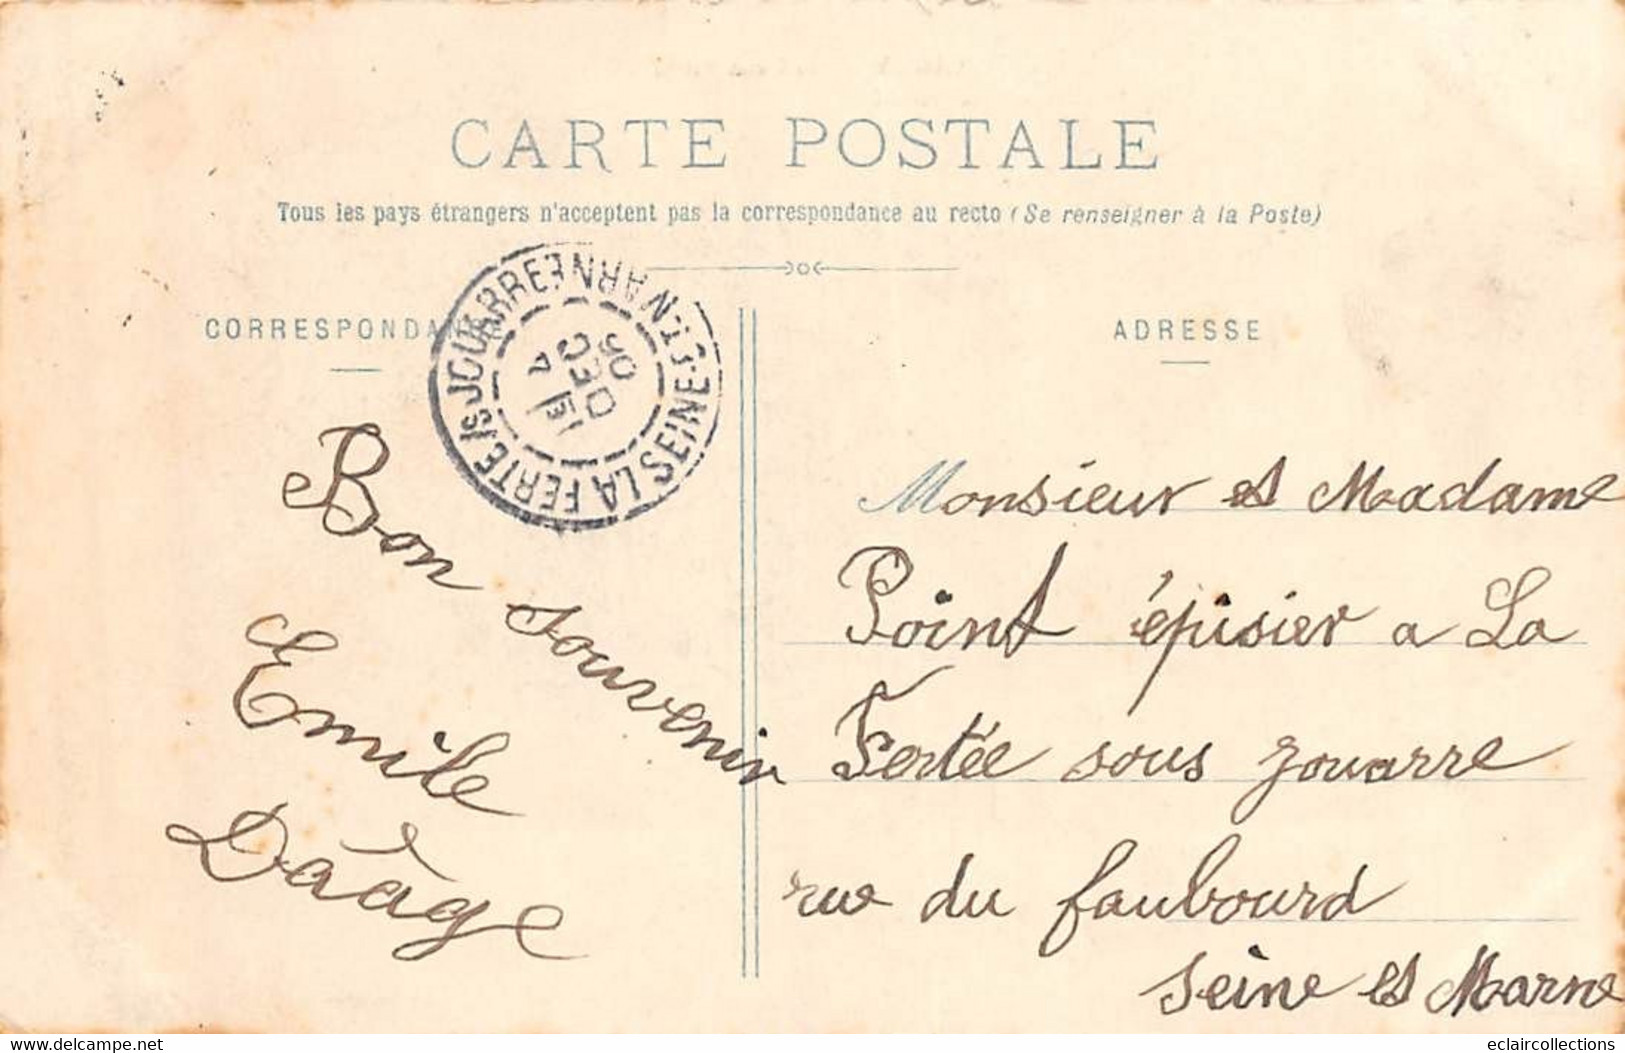 CARTE POSTALE
Tous les pays étrangers n'acceptent pas la correspondance au recto (Se renseigner à la Poste)
CORRESPONDANCE
ADRESSE
LA FERTE Js JOUARRE SEINE-ET-MARNE
DEC
06
Bon souvenir
Emile
Daâge
Monsieur et Madame
Point épisier a La
Fertée sous jouarre
rue du faubourd
seine et Marne
delcampe.net
eclaircollections